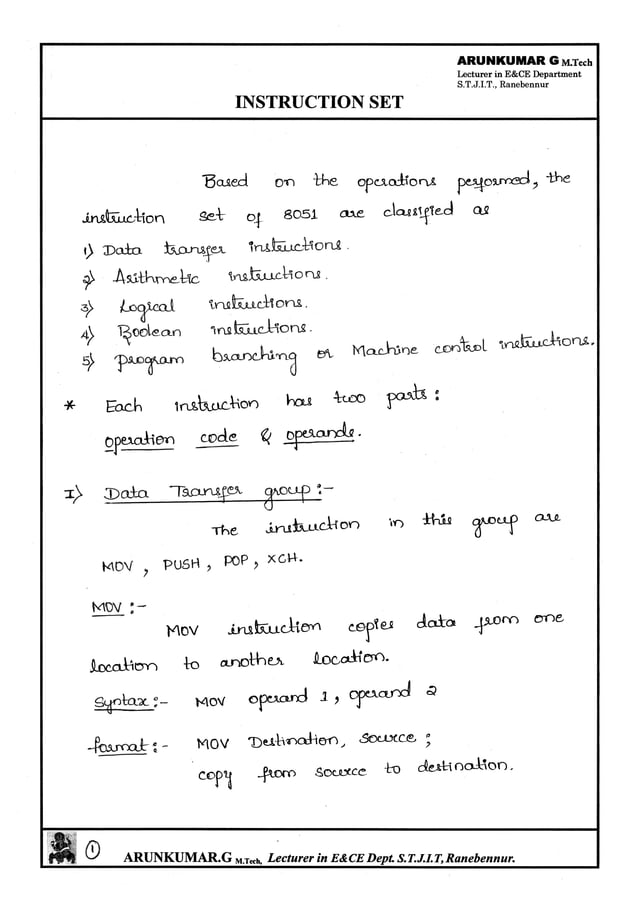 ARUNKUMAR G M.Tech
Lecturer in E&CE Department
S.T.J.I.T., Ranebennur
INSTRUCTION SET
Based on the operations performed, the
instruction set of 8051 are classified as
1) Data transfer instructions.
2) Arithmetic instructions.
3) Logical instructions.
4) Boolean instructions.
5) program branching or Machine control instructions.
* Each instruction has two parts:
operation code & operands.
I) Data Transfer group:-
The instruction in this group are
MOV, PUSH, POP, XCH.
MOV:-
MOV instruction copies data from one
location to another location.
Syntax:- MOV operand 1, operand 2
format:- MOV Destination, source;
copy from source to destination.
1 ARUNKUMAR.G M.Tech, Lecturer in E&CE Dept. S.T.J.I.T, Ranebennur.